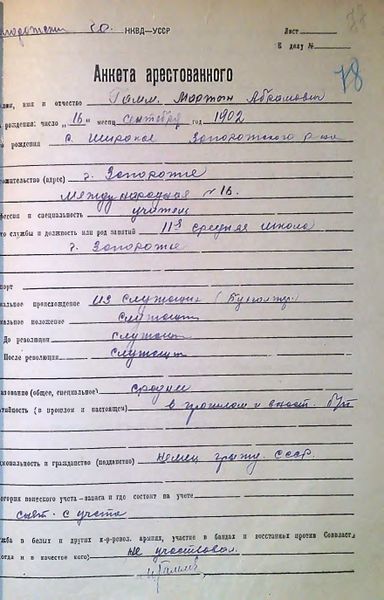 НКВД—УССР
Лист
К делу №
78
Анкета арестованного
имя и отчество Гамм Мартын Абрамович
рождения: число "16" месяц сентября год 1902
рождения с. Широкое Запорожского р-на
жительства (адрес) г. Запорожье
Международная № 16.
фессия и специальность учитель
то службы и должность или род занятий 11я средняя школа
г. Запорожье
порт
альное происхождение из служащих (бухгалтер)
альное положение служащий
До революции служащий
После революции служащий
зование (общее, специальное) среднее
тийность (в прошлом и настоящем) в прошлом и наст. б/п
иональность и гражданство (подданство) немец гражд. СССР.
егория воинского учета-запаса и где состоит на учете
снят с учета
жба в белых и других к-р-револ. армиях, участие в бандах и восстаниях против Соввласти
огда и в качестве кого) не участвовал